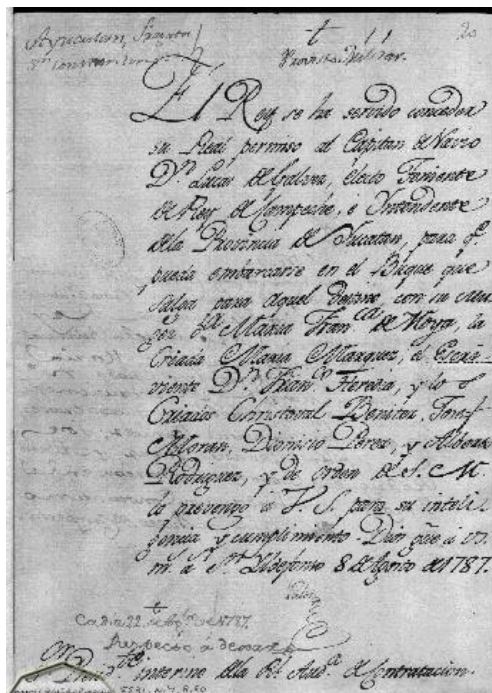 20
El Rey se ha servido conceder
su Real permiso al Capitan de Navio
Dn. Lucas de Galvez, electo Teniente
de Rey de Campeche, e Intendente
de la Provincia de Yucatan, para qe.
pueda embarcarse en el Buque que
salga para aquel destino, con su
Da. Maria Franca. de Moya, la
Criada Maria Marquez, el Escri-
viente Dn. Franco. Heredia, y los
Criados Christoval Benitez, Josef
Moran, Dionicio Perez, y
Rodriguez, y de orden de S. M.
lo prevengo à V. S. para su inteli-
gencia y cumplimiento. Dios gue. à
m. a. Sn. Ildefonso 8 de Agosto de 1787.
Cadiz 22 de Agto. de 1787.
interino de la Rl. Auda. de Contratacion.